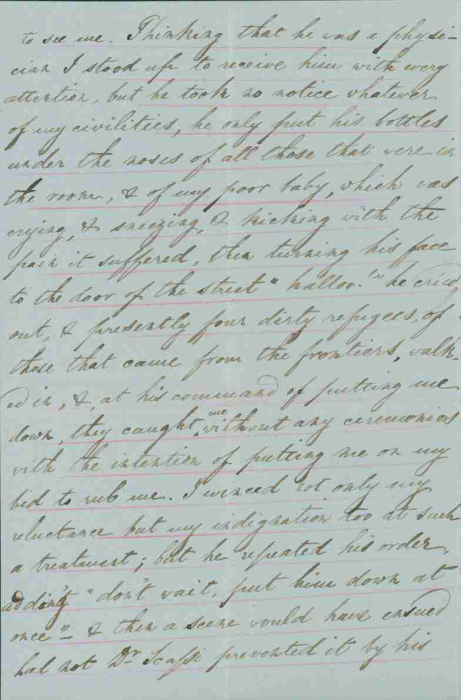 to see me. Thinking that he was a physi-
cian I stood up to receive him with every
attention, but he took no notice whatever
of my civilities, he only put his bottles
under the noses of all those that were in
the room, & of my poor baby, which was
crying, & sneezing, & kicking with the
pain it suffered, then turning his face
to the door of the street "halloo!" he cried
out, & presently four dirty refugees, of
those that came from the frontiers, walk-
ed in, &, at his command of putting me
down, they caught me without any ceremonies
with the intention of putting me on my
bed to rub me. I winced not only my
reluctance but my indignation too at such
a treatment; but he repeated his order,
adding "don't wait, put him down at
once" - & then a scene would have ensued
had not Dr. Scassi prevented it by his